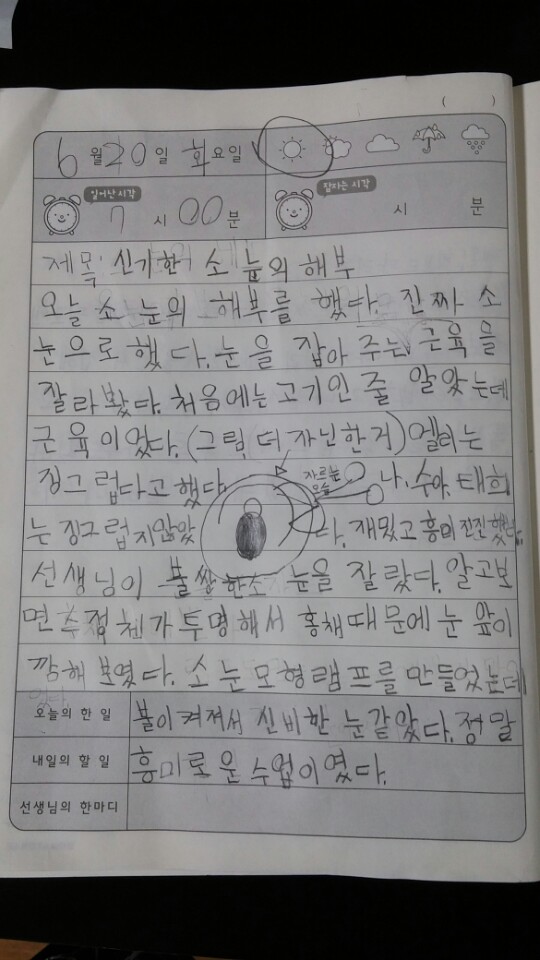 ( )
6월 20일 화요일
일어난 시각
7시 00분
잠자는 시각
시 분
제목: 신기한 소 눈의 해부
오늘 소 눈의 해부를 했다. 진짜 소
눈으로 했다. 눈을 잡아 주는 근육을
잘라 봤다. 처음에는 고기인 줄 알았는데
근육이었다. (그럼 더 자닌한거) 엘라는
징그럽다고 했다. 나, 수아, 태희
자르는
는 징그럽지않았다. 재밌고 흥미진진했다.
선생님이 불쌍한소 눈을 잘랐다. 알고보
면 수정체가 투명해서 홍채때문에 눈 앞이
깜해 보였다. 소 눈모형램프를 만들었는데
오늘의 한 일
불이켜져서 신비한 눈같았다. 정말
내일의 할 일
흥미로운 수업이였다.
선생님의 한마디